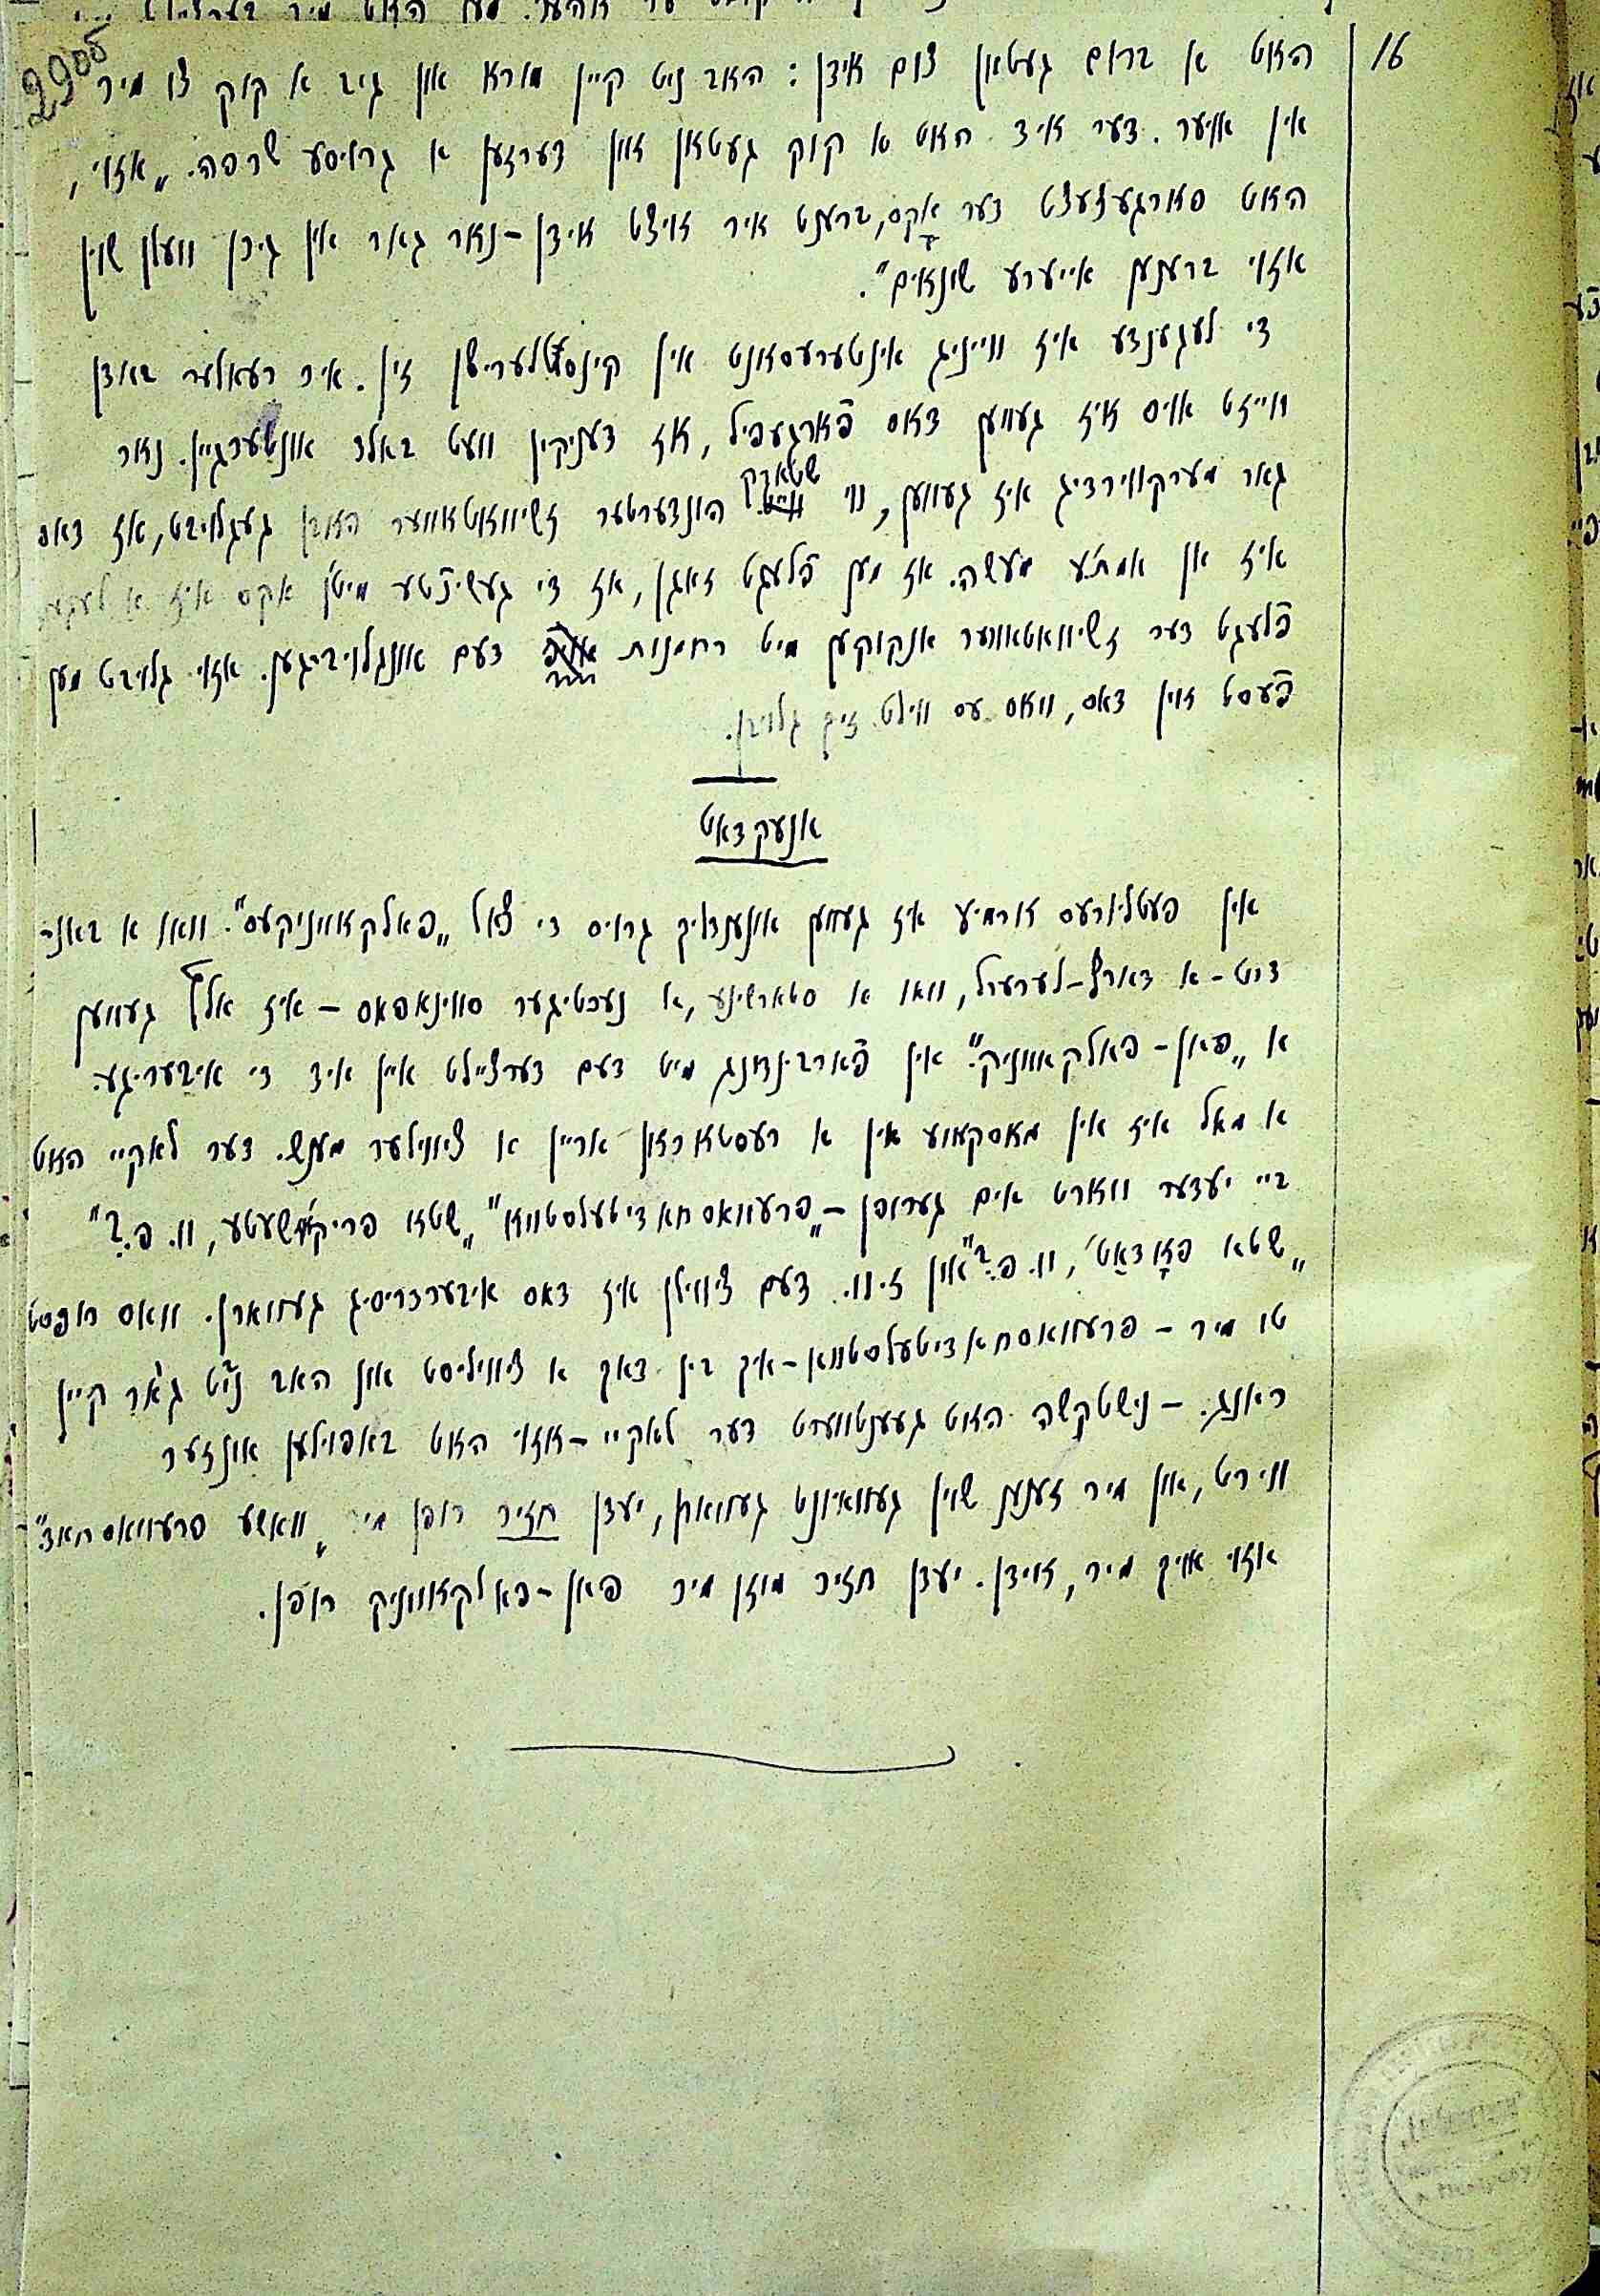 16
290б
האט א ברום געטאן צום אידן: האב ניט קיין מורא און גיב א קוק צו מיר
אין אויער. דער איד האט א קוק געטאן און דערזען א גרויסע שרפה. „אזוי,
האט פארגעזעצט דער אָקס, ברענט איר איצט אידן – נאר גאר אין גיכן וועלן שוין
אזוי ברענען אייערע שונאים".
די לעגענדע איז ווייניג אינטערעסאנט אין קינסטלערישן זין. איר רעאלער באדן
ווייזט אויס איז געווען דאס פֿארגעפיל, אז דעניקין וועט באלד אונטערגיין. נאר
גאר מערקווירדיג איז געווען, ווי שטארק הונדערטער זשיוואטאווער האבן געגלויבט, אז דאס
איז אן אמת'ע מעשה. אז מען פֿלעגט זאגן, אז די געשיכטע מיט'ן אקס איז א
פֿלעגט דער זשיוואטאווער אנקוקען מיט רחמנות דעם אונגלויביגען. אזוי גלויבט מען
פֿעסט אין דאס, וואס עס ווילט זיך גלויבן.
אנעקדאט
אין פעטליורעס ארמיע איז געווען אונענדליך גרויס די צאל „פאלקאווניקעס". וואו א באנ־
דיט – א דארף־לערערל, וואו א סטארשינע, א נעכטיגער סווינאפאס – איז אלץ געווען
א „פאן־פאלקאווניק". אין פֿארבינדונג מיט דעם דערציילט איין איד די איבעריגע.
א מאל איז אין מאסקווע אין א רעסטאראן אריין א ציווילער מענש. דער לאקיי האט
ביי יעדער ווארט אים גערופן – „פרעוואסחאדיטעלסטווא" „שטא פריקאזשעטע, וו. פ.?"
„שטא פּאָדאַט', וו. פ.?" און ז. וו. דעם ציווילן איז דאס איבערדריסיג געווארן. וואס רופסט
טו מיר – פרעוואסחאדיטעלסטווא – איך בין דאך א ציוויליסט און האב ניט גאר קיין
ראנג. – נישטקשה האט געענטווערט דער לאקיי – אזוי האט באפוילען אונזער
ווירט, און מיר זענען שוין געוואוינט געווארן, יעדן חזיר רופן מיר „וואשע פרעוואסחאד."
אזוי אויך מיר, אידן. יעדן חזיר מוזן מיר פאן־פאלקאווניק רופן.